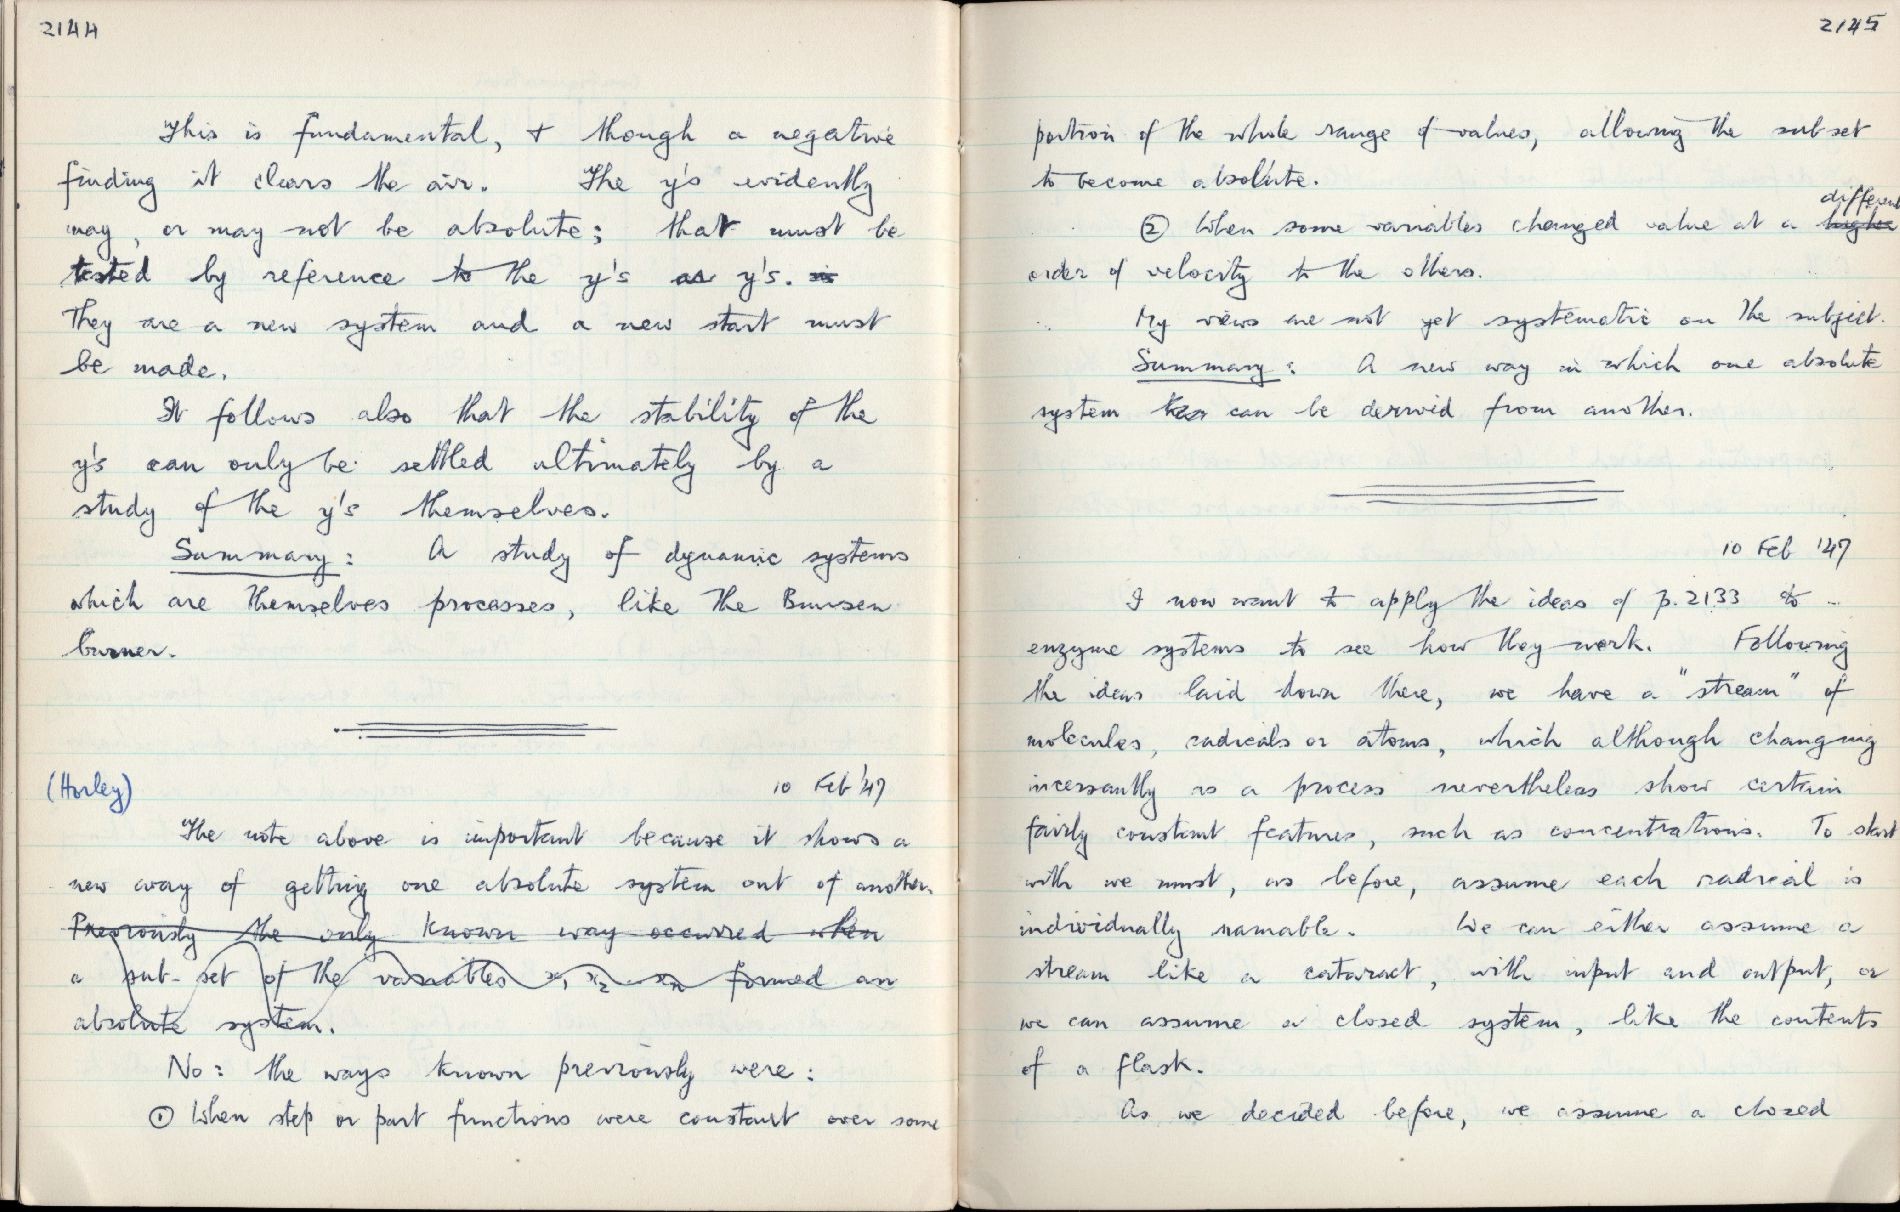 2144
This is fundamental, & though a negative
finding it clears the air. The y's evidently
may, or may not be absolute; that must be
tested by reference to the y's as y's. is
They are a new system and a new start must
be made.
It follows also that the stability of the
y's can only be settled ultimately by a
study of the y's themselves.
Summary: A study of dynamic systems
which are themselves processes, like the Bunsen
burner.
(Horley) 10 Feb '47
The note above is important because it shows a
new way of getting one absolute system out of another.
Previously the only known way occurred when
a sub-set of the variables x1 x2 ... xn formed an
absolute system.
No: the ways known previously were:
① When step or part functions were constant over some
2145
portion of the whole range of values, allowing the subset
to become absolute.
different
② When some variables changed value at a higher
order of velocity to the others.
My views are not yet systematic on the subject.
Summary: A new way in which one absolute
system can be dervied from another.
10 Feb '47
I now want to apply the ideas of p.2133 to
enzyme systems to see how they work. Following
the ideas laid down there, we have a "stream" of
molecules, radicals or atoms, which although changing
incessantly as a process nevertheless show certain
fairly constant features, such as concentrations. To start
with we must, as before, assume each radical is
individually namable. We can either assume a
stream like a cataract, with input and output, or
we can assume a closed system, like the contents
of a flask.
As we decided before, we assume a closed